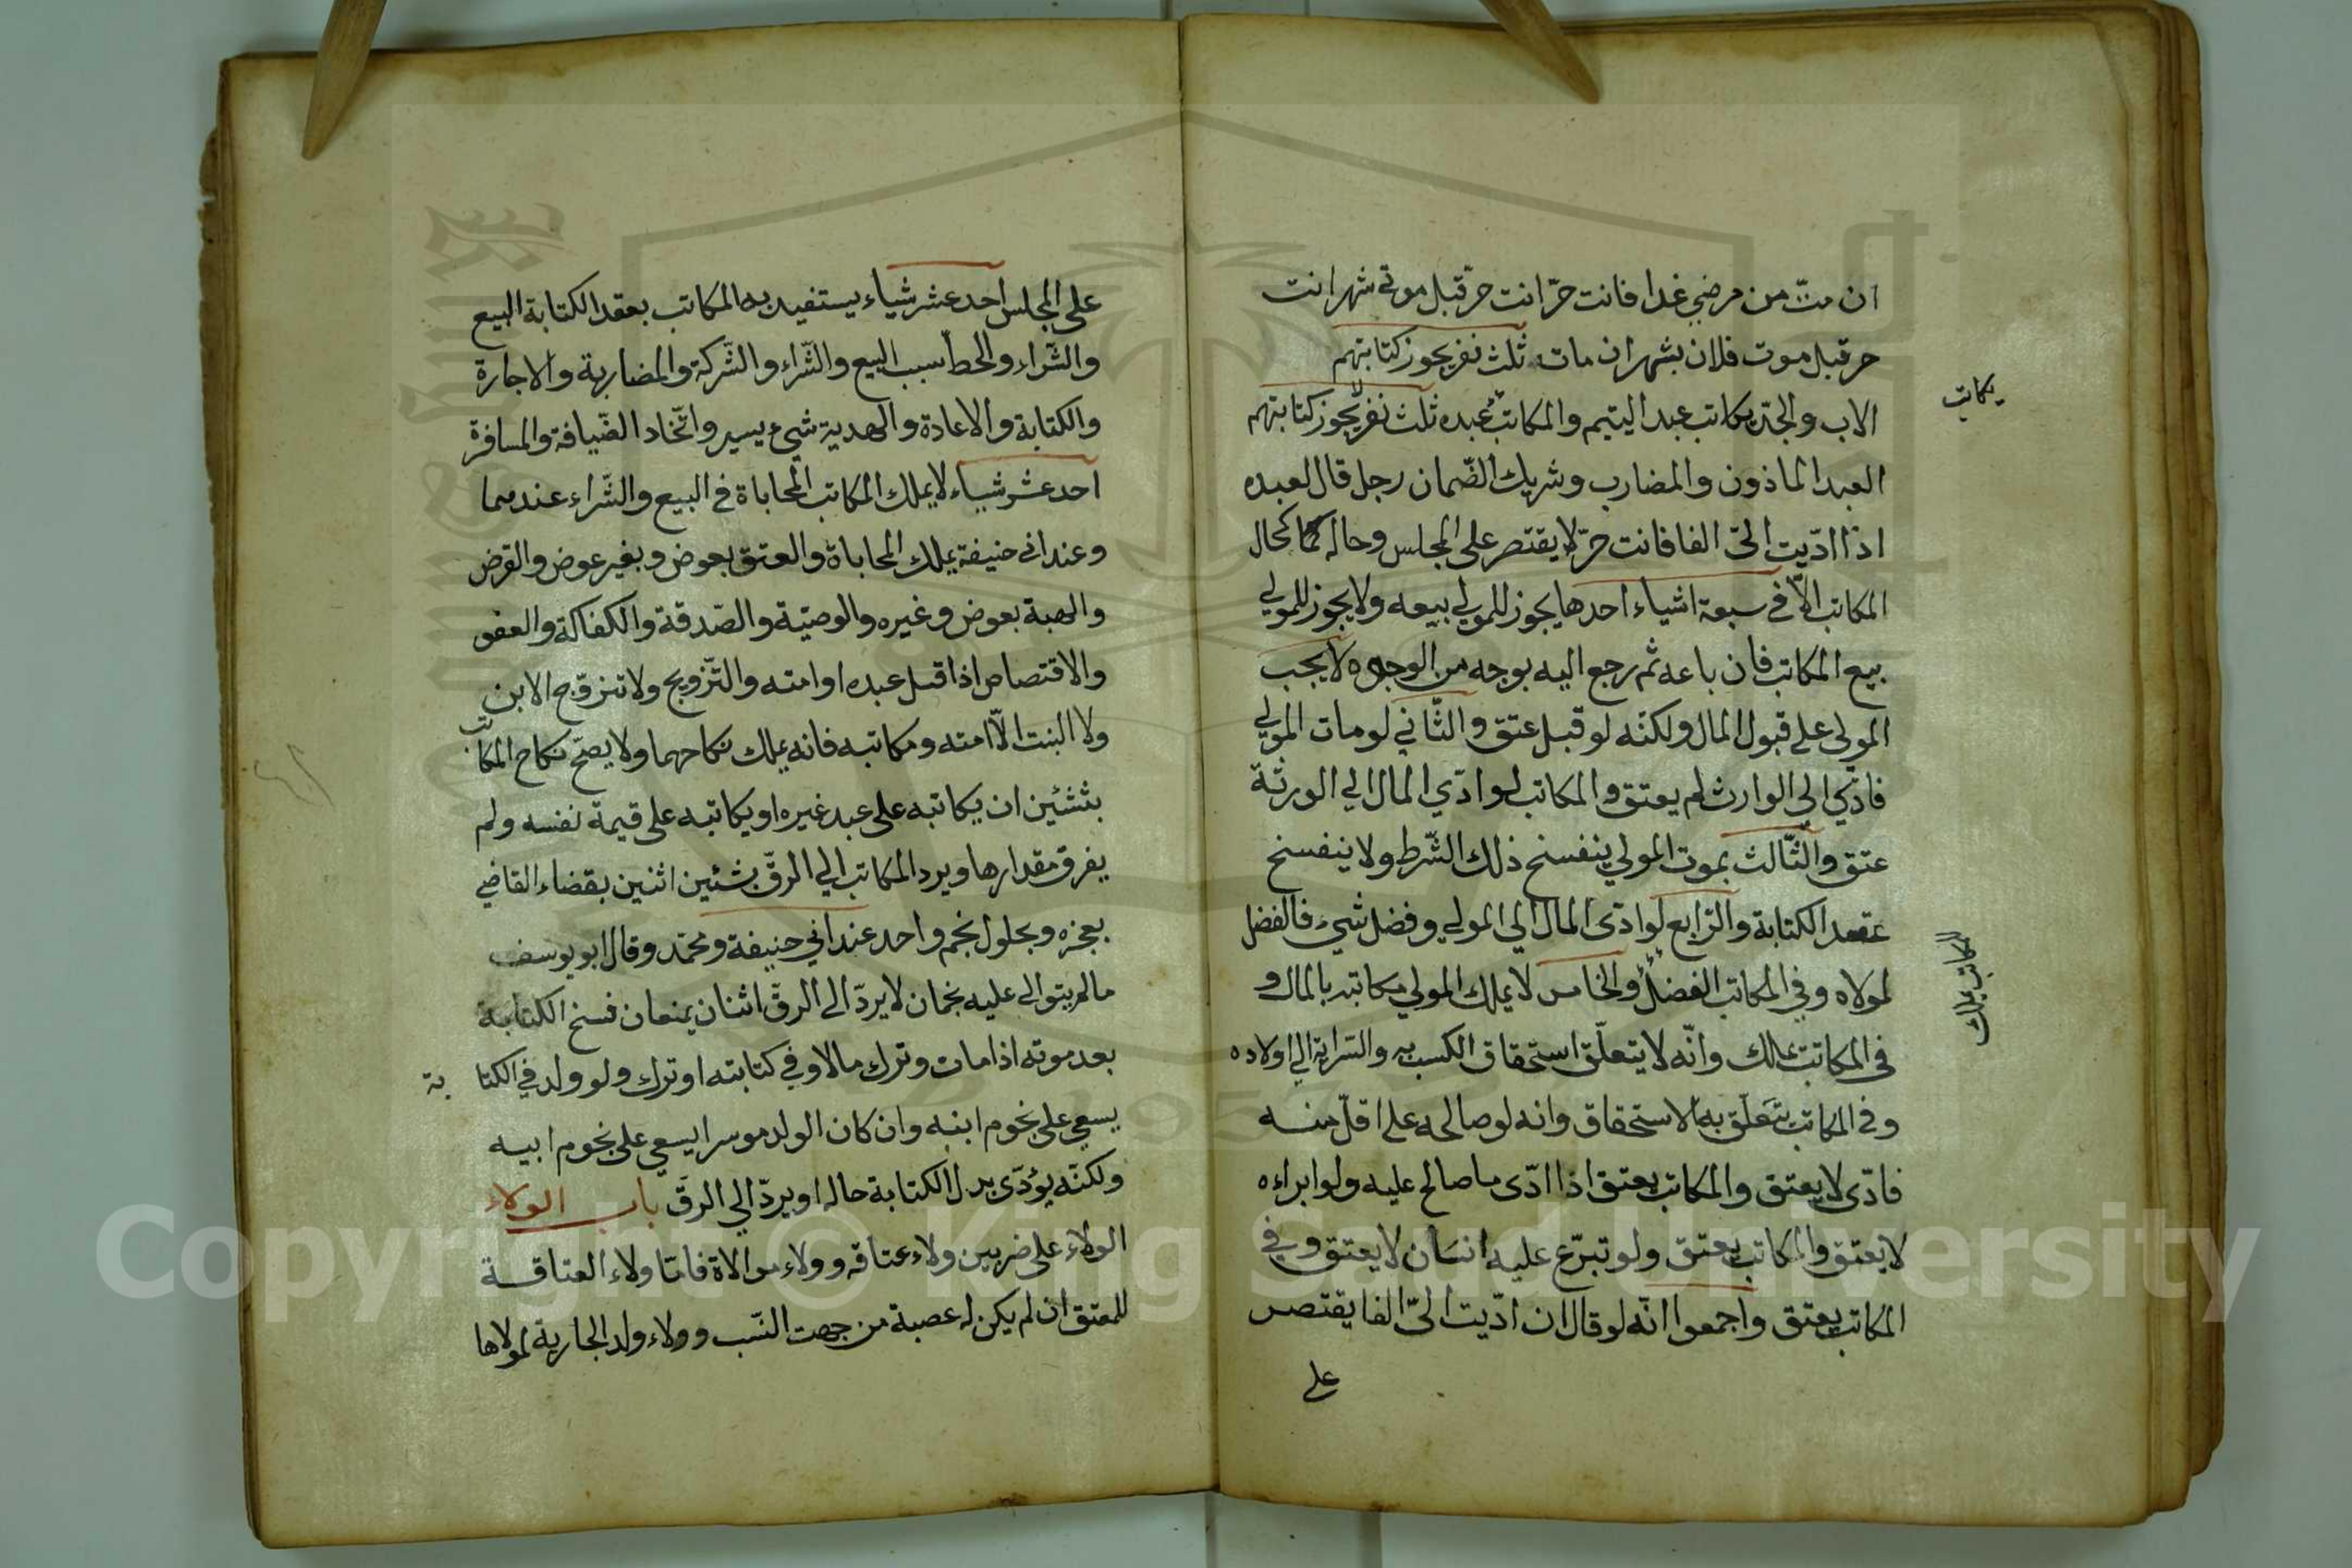 ان متّ من مرضي غدا فانت حرّ انت حرّ قبل موتي شهر انت
حر قبل موت فلان بشهر ان مات ثلث نفر يجوز كتابتهم
الاب والجدّ يكاتب عبد اليتيم والمكاتب عبده ثلث نفر لا يجوز كتابتهم
يكاتب
العبد الماذون والمضارب وشريك الضّمان رجل قال لعبده
اذا ادّيت اليّ الفا فانت حرّ لا يقتصر على المجلس وحاله كما كحال
المكاتب الاّ في سبعة اشياء احدها يجوز للمولي بيعه ولا يجوز للمولي
بيع المكاتب فان باعه ثم رجع اليه بوجه من الوجوه لا يجب
المولى على قبول المال ولكنّه لو قبل عتق والثّاني لو مات المولي
فادّي الي الوارث لم يعتق والمكاتب لو ادّي المال الي الورثة
عتق والثّالث بموت المولي ينفسخ ذلك الشّرط ولا ينفسخ
عقد الكتابة والرّابع لو ادّى المال الي المولي وفضل شيء فالفضل
لمولاه وفي المكاتب الفضل والخامس لا يملك المولي مكاتبه بالمال و
المكاتب يملك
في المكاتب يملك وانّه لا يتعلّق استحقاق الكسب به والسّراية الي اولاده
وفي المكاتب يتعلّق به الاستحقاق وانه لو صالحه على اقلّ منه
فادّى لا يعتق والمكاتب يعتق اذا ادّى ما صالح عليه ولو ابراءه
لا يعتق والمكاتب يعتق ولو تبرّع عليه انسان لا يعتق وفي
المكاتب يعتق واجمعوا انّه لو قال ان ادّيت اليّ الفا يقتصر
على
على المجلس احد عشر شياء يستفيد به المكاتب بعقد الكتابة البيع
والشّراء والحطّ سبب البيع والشّراء والشّركة والمضاربة والاجارة
والكتابة والاعادة والهدية شيء يسير واتّخاد الضّيافة والمسافرة
احد عشر شياء لا يملك المكاتب المحاباة في البيع والشّراء عندهما
وعند ابي حنيفة يملك المحاباة والعتق بعوض وبغير عوض والقرض
والهبة بعوض وغيره والوصيّة والصّدقة والكفالة والعفو
والاقتصاص اذا قتل عبده او امته والتّزويج ولا تزوّج الابن
ولا البنت الاّ امته ومكاتبه فانه يملك نكاحهما ولا يصحّ نكاح المكاتب
بشئين ان يكاتبه على عبد غيره او يكاتبه على قيمة نفسه ولم
يفرق مقدارها ويرد المكاتب الي الرقّ بشئين اثنين بقضاء القاضي
بعجزه وبحلول نجم واحد عند ابي حنيفة ومحمّد وقال ابو يوسف
مالم يتوالى عليه نجمان لا يردّ الى الرقّ اثنان يمنعان فسخ الكتابة
بعد موته اذا مات وترك مالا وفي كتابته او ترك ولو ولد في الكتابة
يسعي على نجوم ابنه وان كان الولد موسرا يسعي على نجوم ابيه
ولكنّه يؤدّى بدل الكتابة حاله او يردّ الي الرقّ باب الولاء
الولاء على ضربين ولاء عتاقه وولاء موالاة فامّا ولاء العتاقة
للمعتق ان لم يكن له عصبة من جهت النّسب وولاء ولد الجارية لمولاها
Copyright © King Saud University
1957